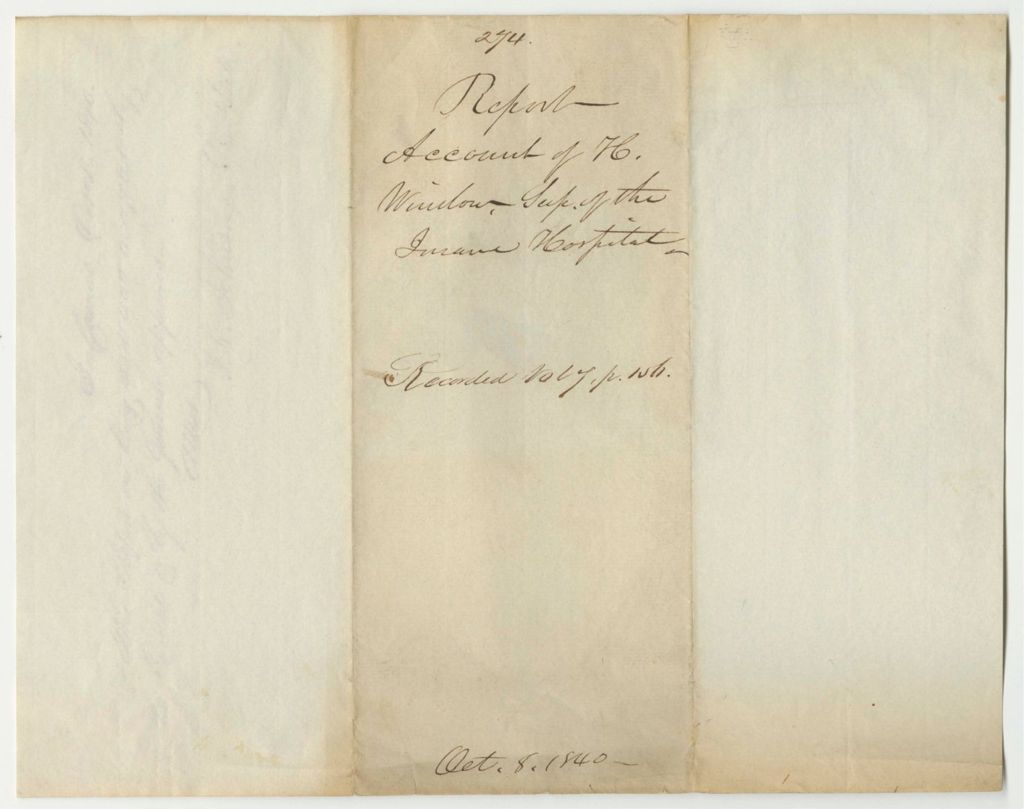 274.
Report
Account of H.
Winslow, Sup. of the
Insane Hospital
Recorded Vol 7. p.
Oct. 8. 1840